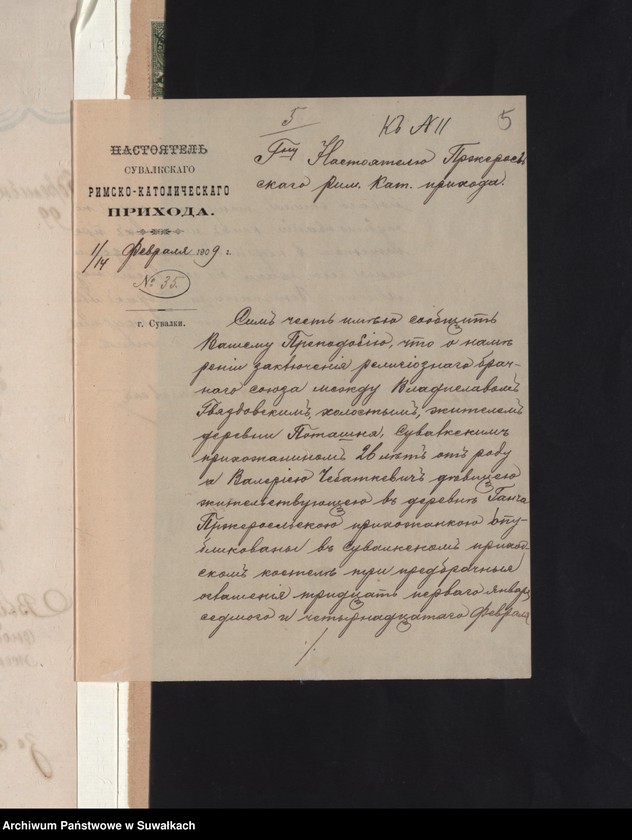 5
Къ № 11
5
НАСТОЯТЕЛЬ
СУВАЛКСКАГО
РИМСКО-КАТОЛИЧЕСКАГО
ПРИХОДА.
1/14 Февраля 1909 г.
№ 35.
г. Сувалки.
Гну Настоятелю Пржерось
скаго Рим. Кат. прихода.
Симъ честь имѣю сообщить
Вашему Преподобію, что о намѣ
реніи заключенія религіознаго брач-
наго союза между Владиславомъ
Гвяздовскимъ, холостымъ, жителемъ
деревни Поташня, Сувалкскимъ
прихожаниномъ 26 лѣтъ отъ роду
а Валеріею Чебаткевичъ дѣвицею
жительствующею въ деревнѣ Ганча
Пржеросльскою прихожанкою опу
бликованы въ Сувалкскомъ приход
скомъ костелѣ три предбрачныя
оглашенія тридцать перваго Января
седьмого и четырнадцатаго Февраля
Archiwum Państwowe w Suwałkach